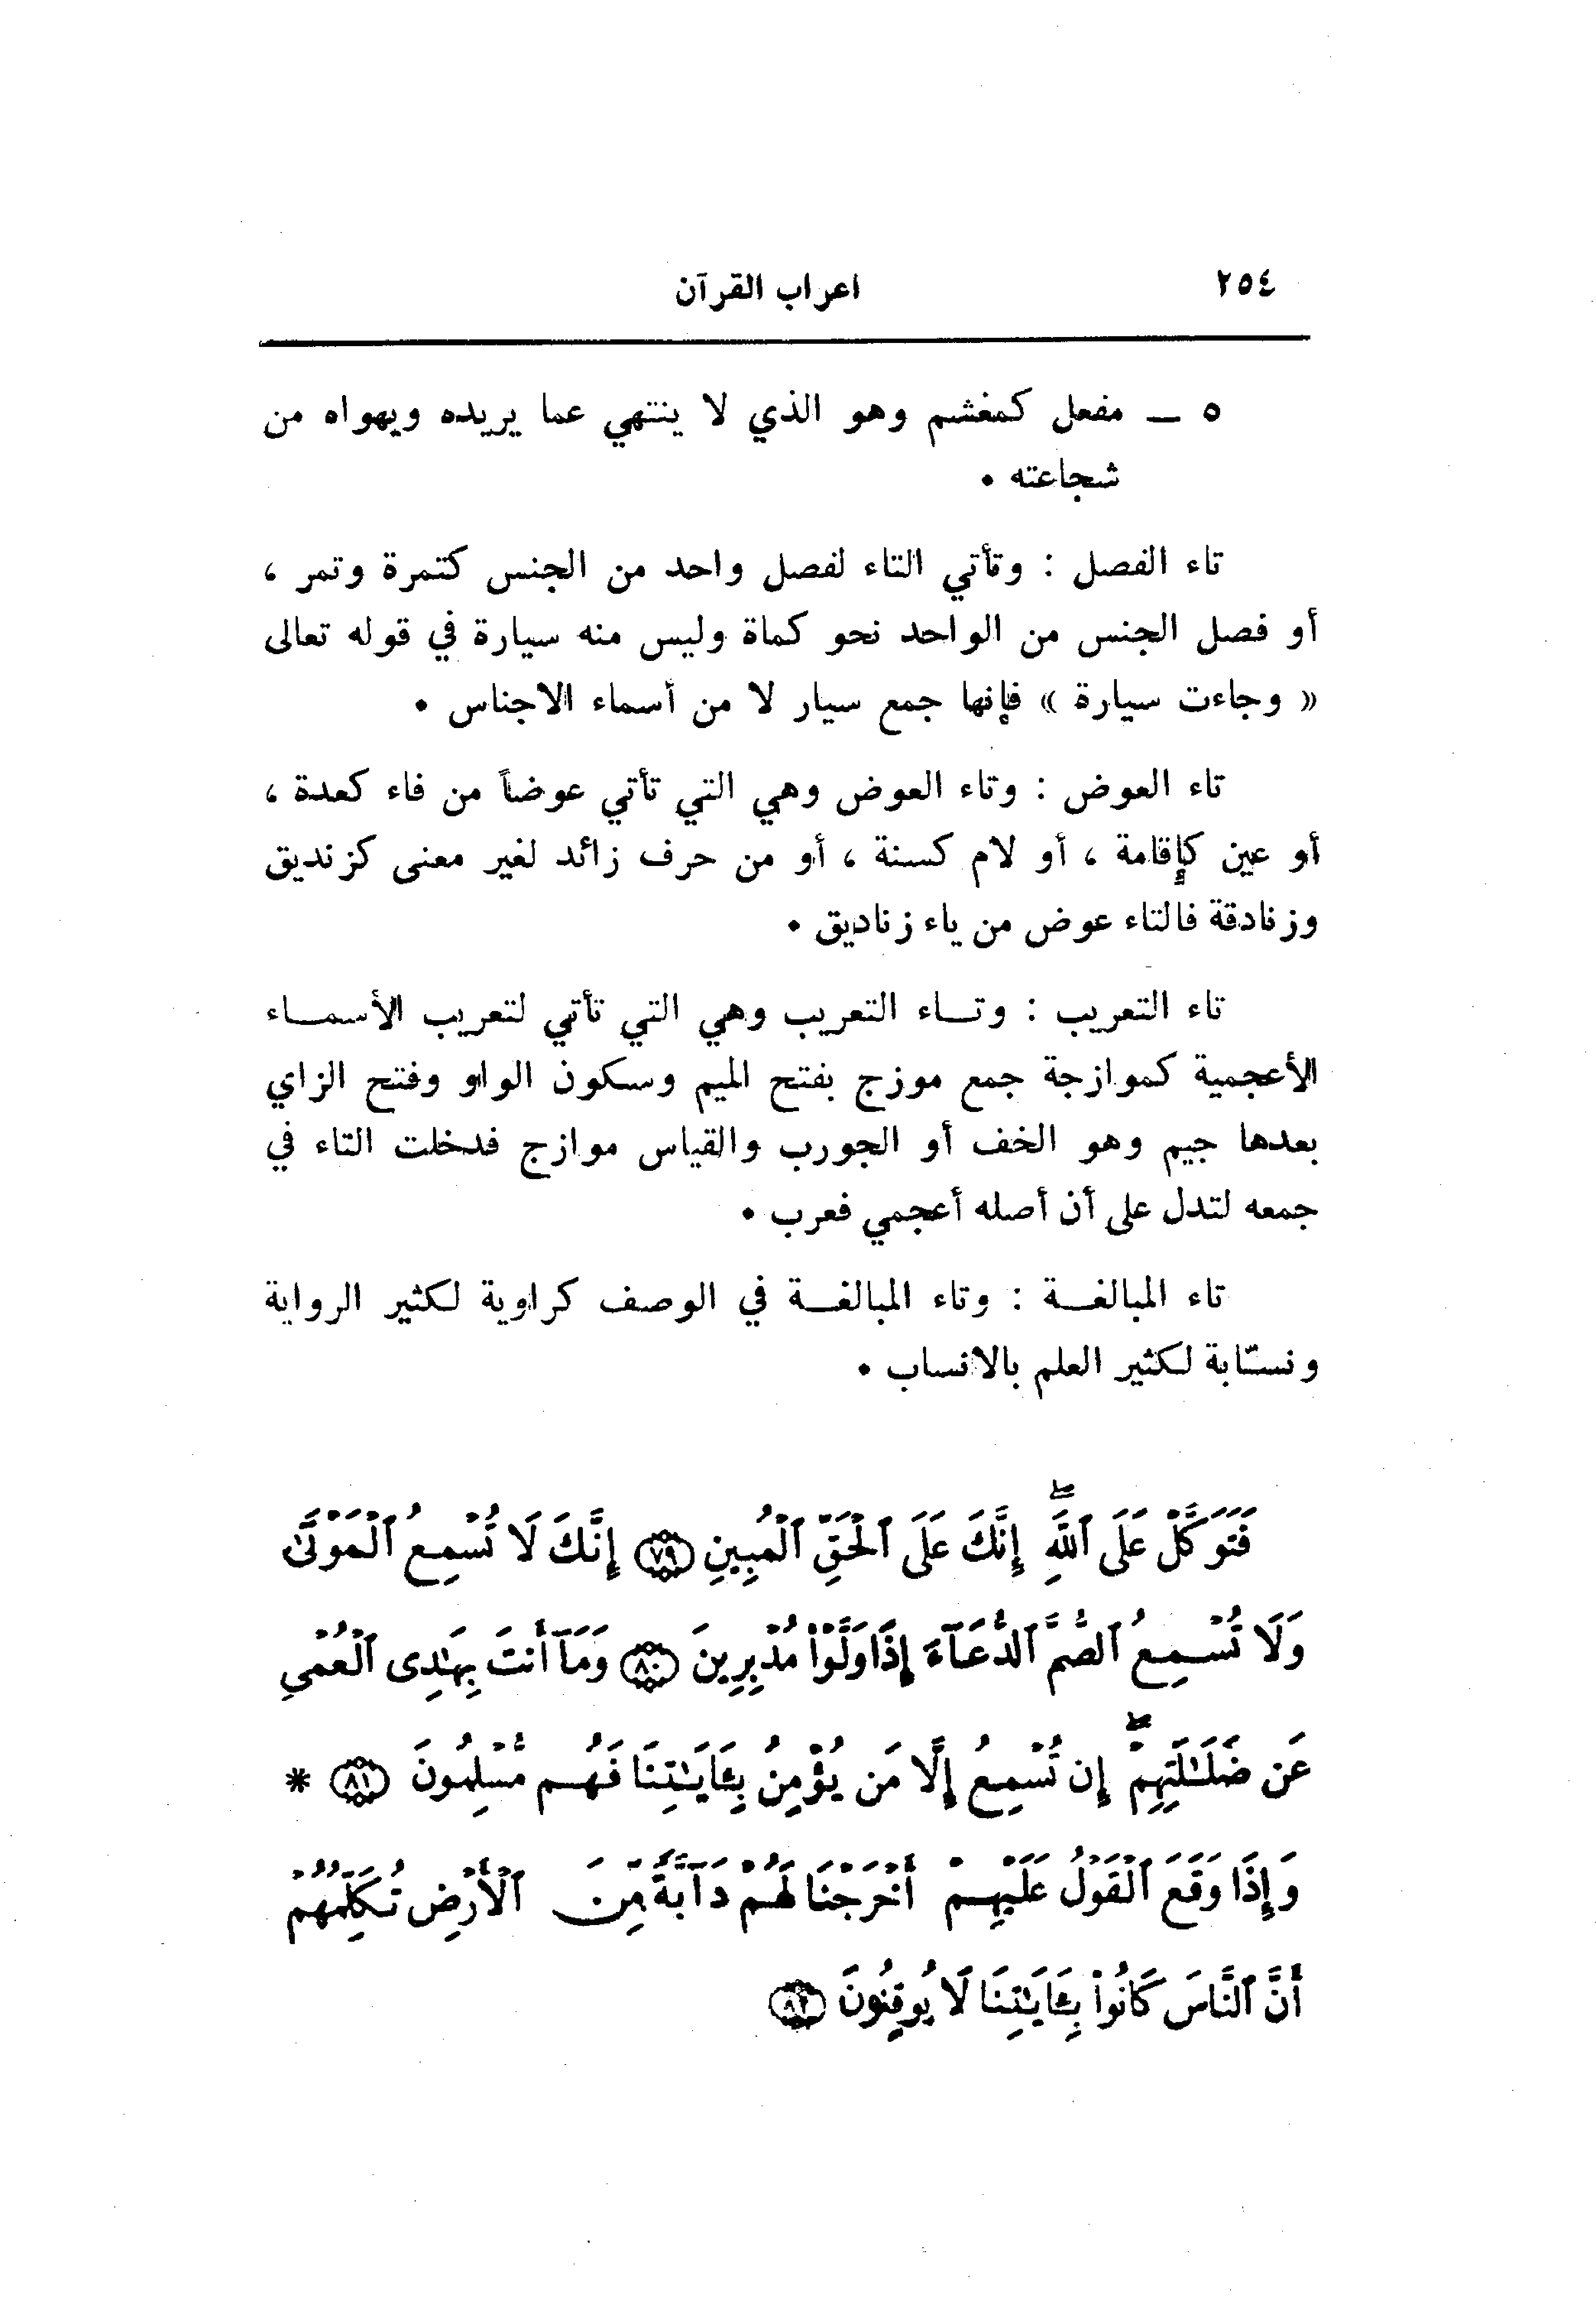 ٢٥٤ اعراب القرآن
٥ — مفعل كمغشم وهو الذي لا ينتهي عما يريده ويهواه من
شجاعته .
تاء الفصل : وتأتي التاء لفصل واحد من الجنس كتمرة وتمر ،
أو فصل الجنس من الواحد نحو كماة وليس منه سيارة في قوله تعالى
« وجاءت سيارة » فإنها جمع سيار لا من أسماء الاجناس .
تاء العوض : وتاء العوض وهي التي تأتي عوضاً من فاء كعدة ،
أو عين كإقامة ، أو لام كسنة ، أو من حرف زائد لغير معنى كزنديق
وزنادقة فالتاء عوض من ياء زناديق .
تاء التعريب : وتـاء التعريب وهي التي تأتي لتعريب الأسمـاء
الأعجمية كموازجة جمع موزج بفتح الميم وسكون الواو وفتح الزاي
بعدها جيم وهو الخف أو الجورب والقياس موازج فدخلت التاء في
جمعه لتدل على أن أصله أعجمي فعرب .
تاء المبالغـة : وتاء المبالغـة في الوصف كراوية لكثير الرواية
ونسّابة لكثير العلم بالانساب .
فَتَوَكَّلْ عَلَى ٱللَّهِۖ إِنَّكَ عَلَى ٱلْحَقِّ ٱلْمُبِينِ ٧٩ إِنَّكَ لَا تُسْمِعُ ٱلْمَوْتَىٰ
وَلَا تُسْمِعُ ٱلصُّمَّ ٱلدُّعَآءَ إِذَا وَلَّوْا۟ مُدْبِرِينَ ٨٠ وَمَآ أَنتَ بِهَٰدِى ٱلْعُمْىِ
عَن ضَلَٰلَتِهِمْۖ إِن تُسْمِعُ إِلَّا مَن يُؤْمِنُ بِـَٔايَٰتِنَا فَهُم مُّسْلِمُونَ ٨١ *
وَإِذَا وَقَعَ ٱلْقَوْلُ عَلَيْهِمْ أَخْرَجْنَا لَهُمْ دَآبَّةً مِّنَ ٱلْأَرْضِ تُكَلِّمُهُمْ
أَنَّ ٱلنَّاسَ كَانُوا۟ بِـَٔايَٰتِنَا لَا يُوقِنُونَ ٨٢